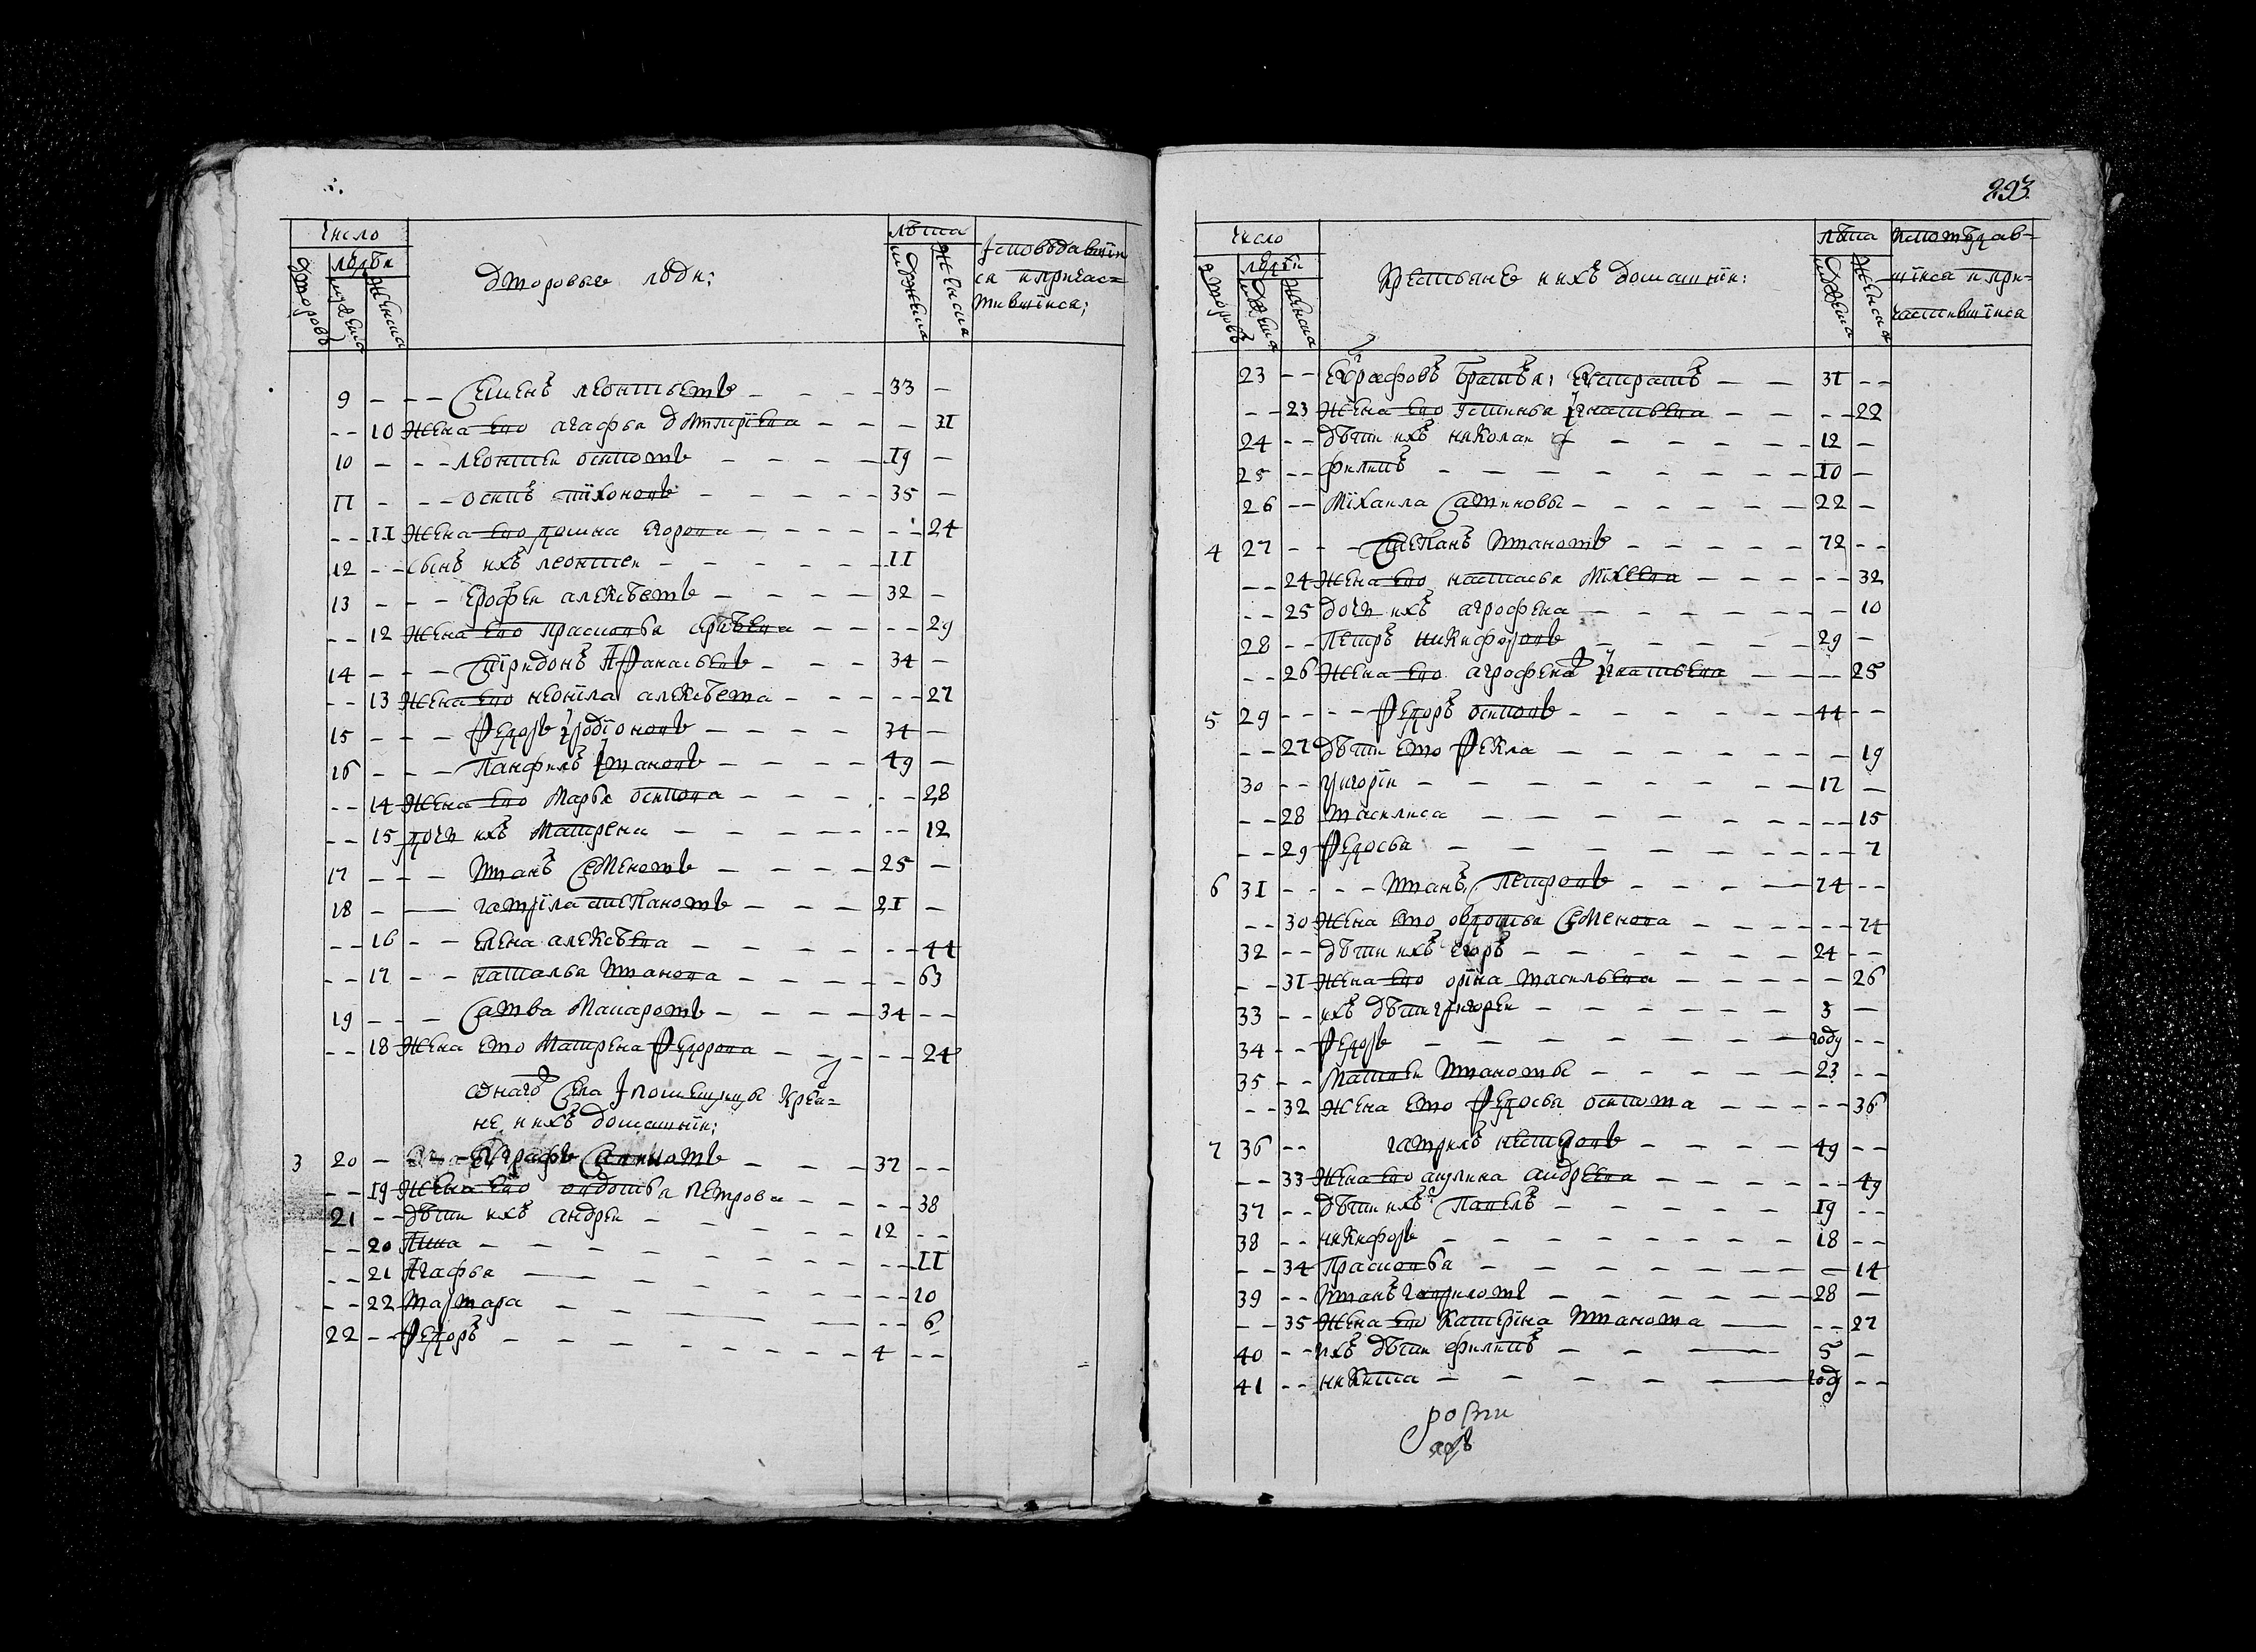 число
людѣй
дворовъ
мужеска
женска
дворовые люди:
лѣта
мужеска
женска
Їсповѣдавшїи
ся и причас=
тившїися;
9 – – – Семенъ леонтьевъ – – – – 33 –
– – 10 жена ево агафья дмитрїева – – – – 31
10 – – – леонтеи осиповъ – – – – 19 –
11 – – – осипъ тїхоновъ – – – – 35 –
– – 11 жена ево домна егорова – – – – – – 24
12 – – сынъ ихъ леонтеи – – – – – – 11
13 – – – Ерофеи алексѣевъ – – – – 32 –
– – 12 жена ево прасковья сергѣева – – – – 29
14 – – – Спїридонъ Афанасьевъ – – – 34 –
– – 13 жена ево неонїла алексѣева – – – – – 27
15 – – – Федоръ родїоновъ – – – – 34 –
16 – – – Панфилъ Ївановъ – – – – 49 –
– – 14 жена ево Марья осипова – – – – – 28
– – 15 дочь ихъ Матрена – – – – – – – 12
17 – – – Иванъ Семеновъ – – – – 25 –
18 – – гаврїла степановъ – – – 21 –
– – 16 – – елена алексѣева – – – – – – 44
– – 17 – – наталья Иванова – – – – – – 63
19 – – – Савва Макаровъ – – – – 34 – –
– – 18 жена ево Матрена Федорова – – – – – 24
однаго Села Їпомещицы крея=
не и ихъ домашнїи:
3 20 – Евграфъ Савиновъ – – – 37 – –
– – 19 жена ево овдотья петрова – – – – 38
21 – – дѣти ихъ андреи – – – – – 12 – –
– – 20 Анна – – – – – – – – – 11
– – 21 Агафья – – – – – – – 10
– – 22 варвара – – – – – – 6
22 – – Федоръ – – – – – – – – 4 – –
293
число
людѣй
дворовъ
мужеска
женска
Крестьяне и ихъ домашнїи:
лѣта
мужеска
женска
исповѣдав=
шїися и при=
частившїися
23 – – Евграфовъ братъя: Евстратъ – – 31 – –
– – 23 жена ево устинья Їгнатьева – – – – 22
24 – – дѣти ихъ николаи – – – – – 12 –
25 – – филипъ – – – – – – – – 10 –
26 – – Мїхаила Савиновы – – – – – – 22 –
4 27 – – – Степанъ Ивановъ – – – – – 72 – –
– – 24 жена ево настасья Мїхеева – – – – – – 32
– – 25 дочь ихъ агрофена – – – – – – – – 10
28 – – Петръ никифоровъ – – – – – 29 –
– – 26 жена ево агрофена Їгнатьева – – – 25
5 29 – – – – Федоръ осиповъ – – – – – – 44 – –
– – 27 дѣти ево Фекла – – – – – – – – 19
30 – – григорїи – – – – – – – – 17 –
– – 28 василиса – – – – – – – – – 15
– – 29 Федосья – – – – – – – – – 7
6 31 – – – – Иванъ, Петровъ – – – – 74 – –
– – 30 жена ево овдотья Семенова – – – – – – 74
32 – – дѣти ихъ егоръ – – – – – – 24 – –
– – 31 жена ево орїна васильева – – – – – – 26
33 – – ихъ дѣти григореи – – – – – – 3 –
34 – – Федоръ – – – – – – – – году – –
35 – – Матвеи Ивановы – – – – – 23 – –
– – 32 жена ево Федосья осипова – – – – – 36
7 36 – – гаврилъ нестеровъ – – – – 49 – –
– – 33 жена ево акулина андреева – – – – – – 49
37 – – дѣти ихъ: Павелъ – – – – – 19 – –
38 – – никифоръ – – – – – – – – 18 – –
– – 34 Прасковья – – – – – – – – – 14
39 – – Иванъ гавриловъ – – – – – – 28 –
– – 35 жена ево катерїна Иванова – – – 27
40 – – ихъ дѣти филипъ – – – 5 –
41 – – никита – – – – – году – –